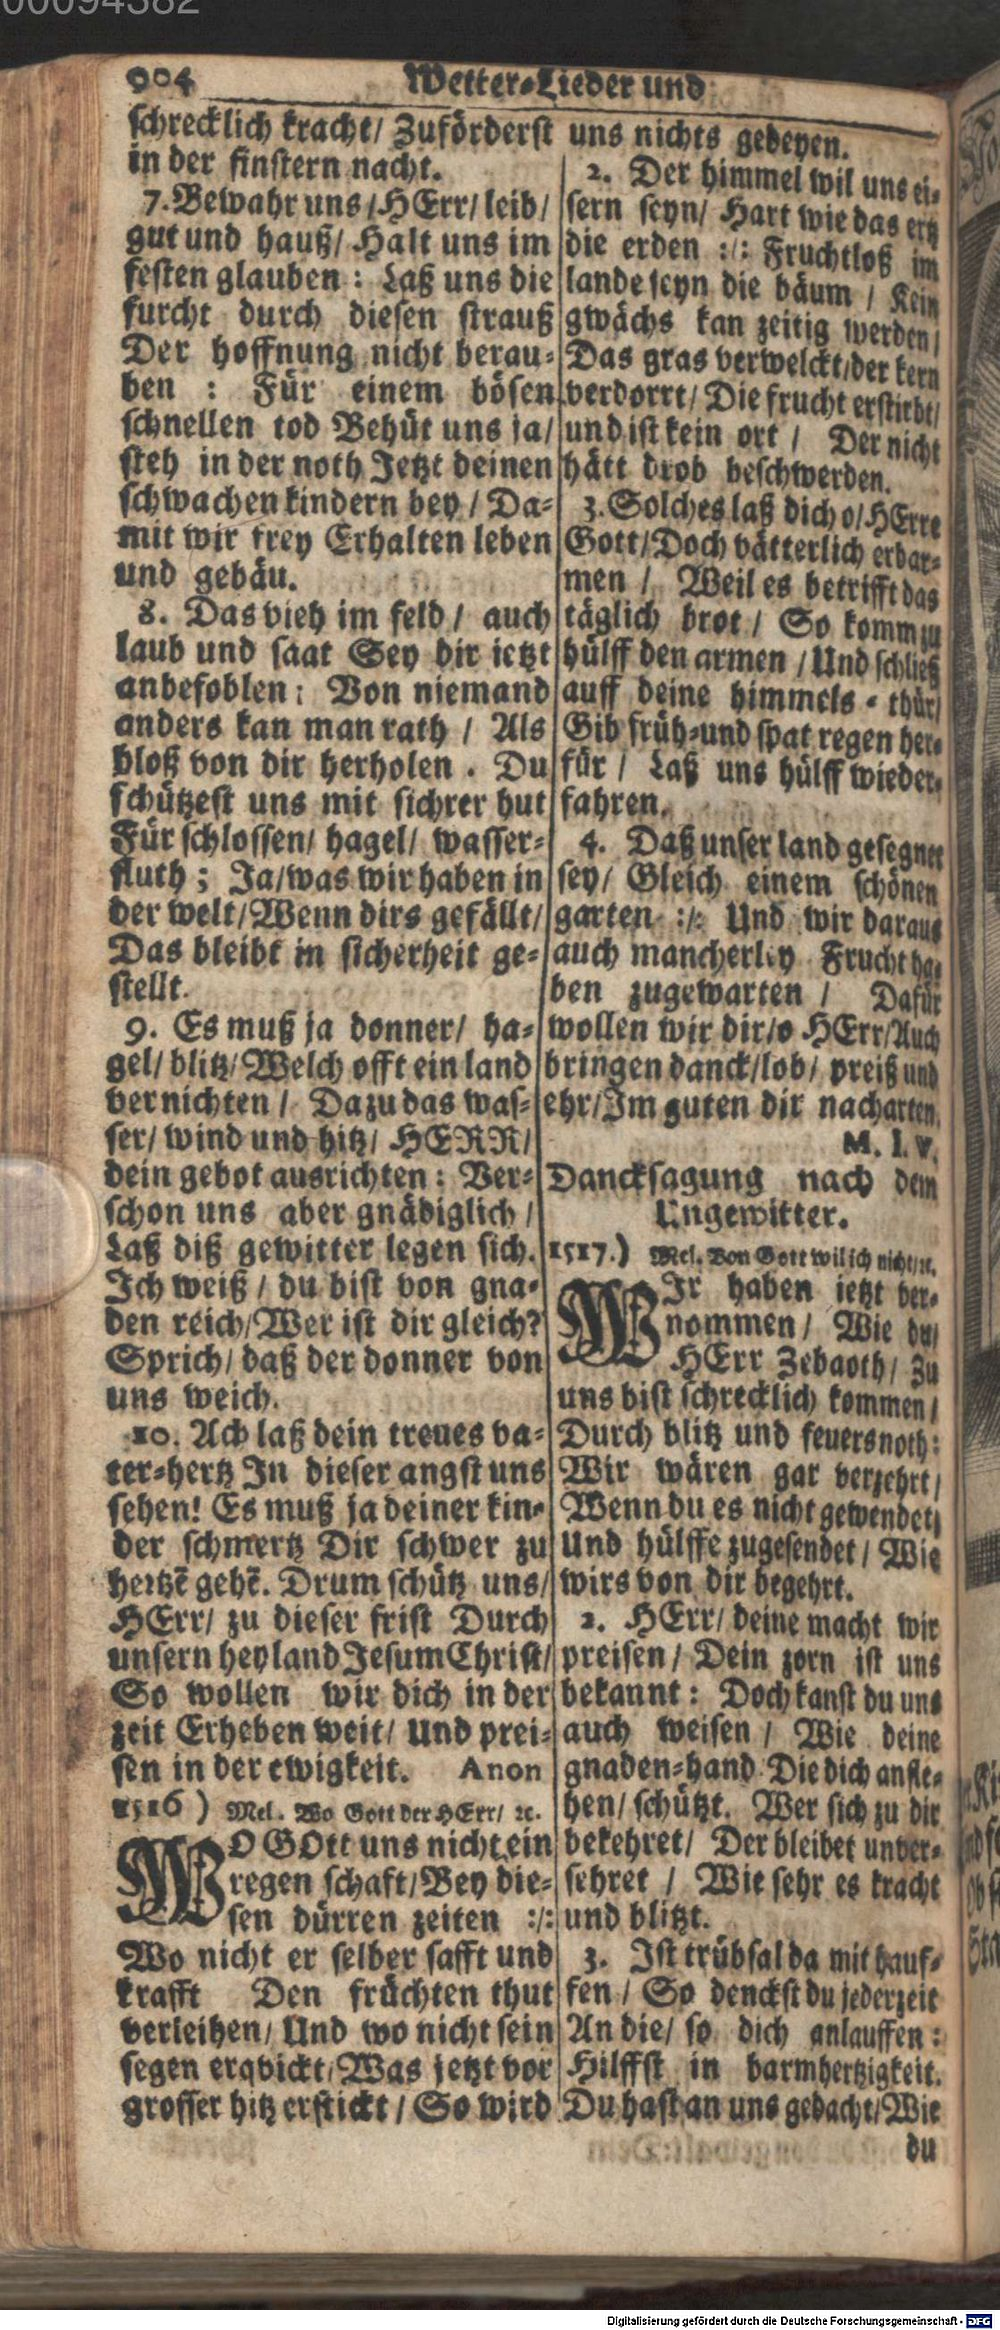 00094382
904 Wetter-Lieder und
schrecklich kracht/ Zuförderst
in der finstern nacht.
7. Bewahr uns/HErr/leib/
gut und hauß/ Halt uns im
festen glauben: Laß uns die
furcht durch diesen strauß
Der hoffnung nicht berau-
ben : Für einem bösen
schnellen tod Behüt uns ja/
steh in der noth Jetzt deinen
schwachen kindern bey / Da-
mit wir frey Erhalten leben
und gebäu.
8. Das vieh im feld / auch
laub und saat Sey dir ietzt
anbefohlen: Von niemand
anders kan man rath / Als
bloß von dir herholen. Du
schützest uns mit sichrer hut
Für schlossen/ hagel/ wasser-
fluth; Ja/was wir haben in
der welt/Wenn dirs gefällt/
Das bleibt in sicherheit ge-
stellt.
9. Es muß ja donner/ ha-
gel/ blitz/Welch offt ein land
vernichten / Dazu das was-
ser/ wind und hitz/ HERR/
dein gebot ausrichten: Ver-
schon uns aber gnädiglich /
Laß diß gewitter legen sich.
Ich weiß / du bist von gna-
den reich/Wer ist dir gleich?
Sprich/ daß der donner von
uns weich.
10. Ach laß dein treues va-
ter-hertz In dieser angst uns
sehen! Es muß ja deiner kin-
der schmertz Dir schwer zu
hertzē gehē. Drum schütz uns/
HErr/ zu dieser frist Durch
unsern heyland Jesum Christ/
So wollen wir dich in der
zeit Erheben weit/ Und prei-
sen in der ewigkeit. Anon
1516 ) Mel. Wo Gott der HErr/ ꝛc.
WO GOtt uns nicht ein
regen schaft/Bey die-
sen dürren zeiten :/:
Wo nicht er selber safft und
krafft Den früchten thut
verleihen/ Und wo nicht sein
segen erqvickt/Was jetzt vor
grosser hitz erstickt / So wird
uns nichts gedeyen.
2. Der himmel wil uns ei-
sern seyn/ Hart wie das ertz
die erden :/: Fruchtloß im
lande seyn die bäum / Kein
gwächs kan zeitig werden/
Das gras verwelckt/der kern
verdorrt/ Die frucht erstirbt/
und ist kein ort / Der nicht
hätt drob beschwerden.
3. Solches laß dich o/HErre
Gott/Doch vätterlich erbar-
men / Weil es betrifft das
täglich brot / So komm zu
hülff den armen / Und schließ
auff deine himmels-thür/
Gib früh-und spat regen her-
für / Laß uns hülff wieder-
fahren.
4. Daß unser land gesegnet
sey/ Gleich einem schönen
garten :/: Und wir daraus
auch mancherley Frucht ha-
ben zugewarten / Dafür
wollen wir dir/o HErr/Auch
bringen danck/lob/ preiß und
ehr/Im guten dir nacharten.
M. I. V.
Dancksagung nach dem
Ungewitter.
1517.) Mel. Von Gott wil ich nicht/ꝛc.
WIr haben jetzt ver-
nommen/ Wie du/
HErr Zebaoth/ Zu
uns bist schrecklich kommen/
Durch blitz und feuersnoth:
Wir wären gar verzehrt/
Wenn du es nicht gewendet/
Und hülffe zugesendet/ Wie
wirs von dir begehrt.
2. HErr/ deine macht wir
preisen/ Dein zorn ist uns
bekannt: Doch kanst du uns
auch weisen / Wie deine
gnaden-hand Die dich anfle-
hen/ schützt. Wer sich zu dir
bekehret/ Der bleibet unver-
sehret / Wie sehr es kracht
und blitzt.
3. Ist trübsal da mit hauf-
fen / So denckst du jederzeit
An die/ so dich anlauffen:
Hilffst in barmhertzigkeit.
Du hast an uns gedacht/Wie
du
Digitalisierung gefördert durch die Deutsche Forschungsgemeinschaft - DFG